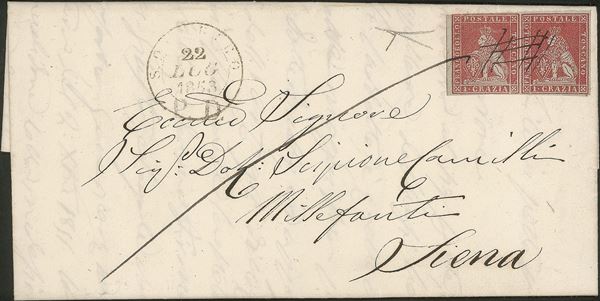 22
LUG
1853
P D
FRANCOBOLLO POSTALE TOSCANO
1 · CRAZIA
FRANCOBOLLO POSTALE TOSCANO
1 · CRAZIA
Signore
Sig.e Dott. Scipione Camilli
Millefanti
Siena